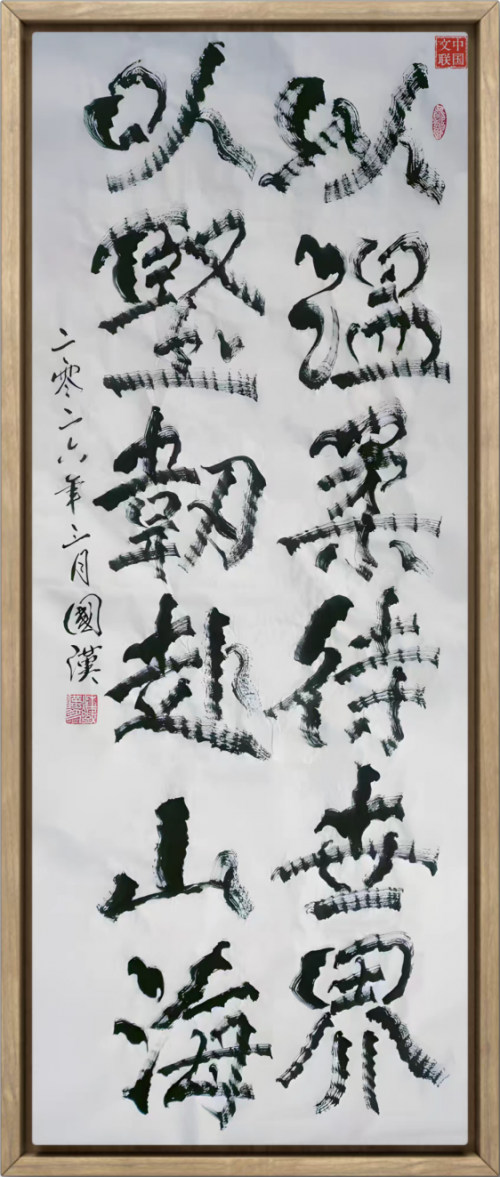 以温柔待世界
以坚韧赴山海
二零二六年三月國漢
中国文联